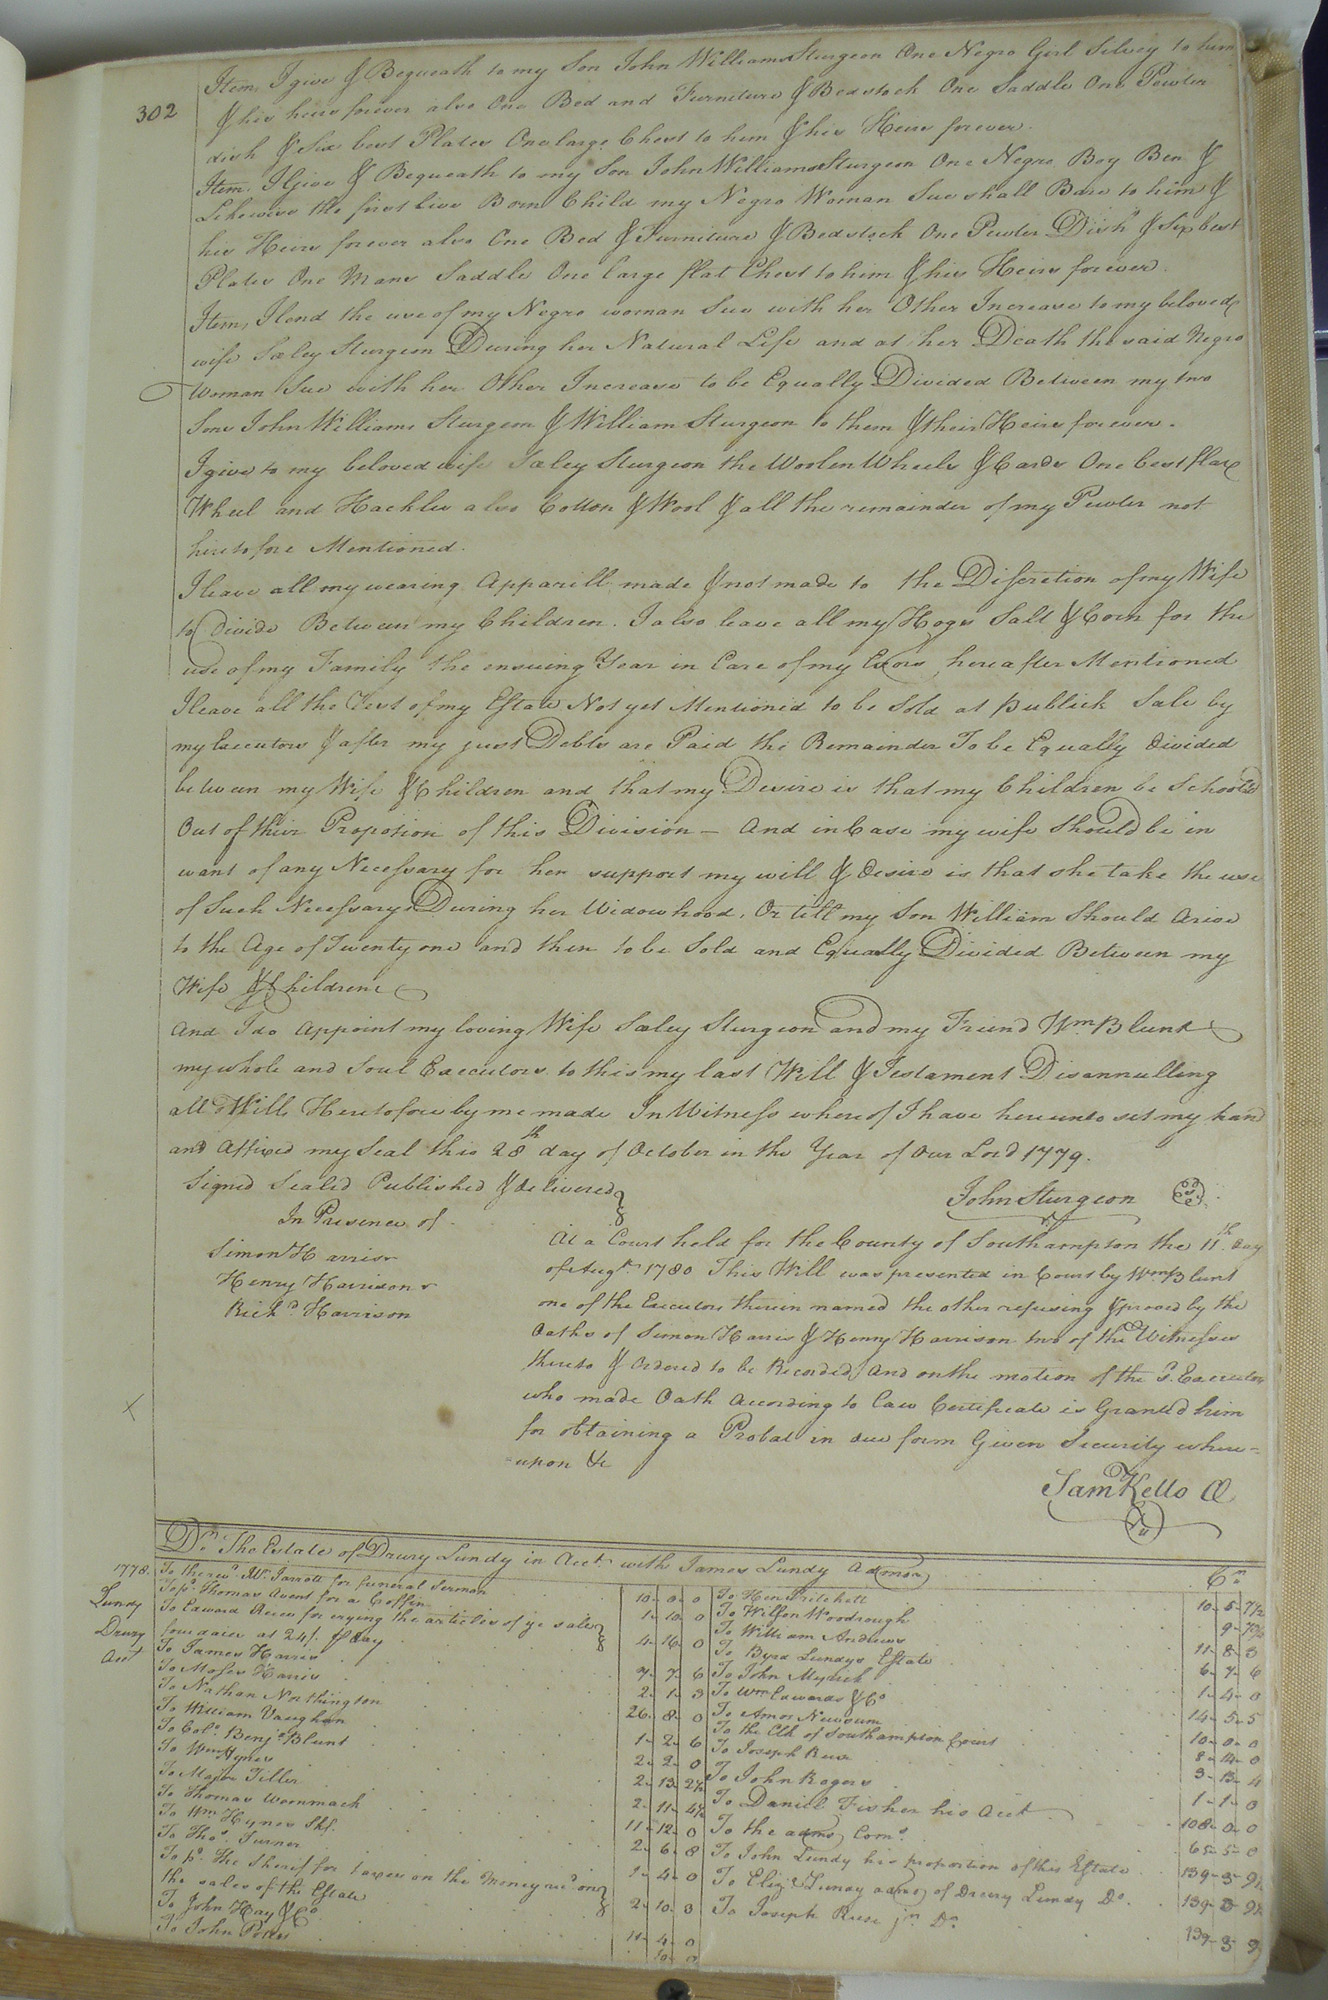 302
Item, I give & Bequeath to my Son John Williams Sturgeon One Negro Girl Silvey to him
& his heirs forever also One Bed and Furniture & Bedstock One Saddle One Pewter
dish & Six best Plates One large Chest to him & his Heirs forever.
Item. I Give & Bequeath to my Son John Williams Sturgeon One Negro Boy Ben &
Likewise the first live Born Child my Negro Woman Sue shall Bare to him &
his Heirs forever also One Bed & Furniture & Bedstock One Pewter Dish & Six best
Plates One Mans Saddle One large flat Chest to him & his Heirs forever.
Item, I lend the use of my Negro woman Sue with her Other Increase to my beloved
wife Saley Sturgeon During her Natural Life and at her Death the said Negro
Woman Sue with her Other Increase to be Equally Divided Between my two
Sons John Williams Sturgeon & William Sturgeon to them & their Heirs forever.
I give to my beloved wife Saley Sturgeon the Woolen Wheels & Cards One best flax
Wheel and Hackles also Cotton & Wool & all the remainder of my Pewter not
heretofore Mentioned.
I leave all my wearing Apparill made & not made to the Discretion of my Wife
to Divide Between my Children. I also leave all my Hogs Salt & Corn for the
use of my Family the ensuing Year in Care of my Exors, hereafter Mentioned
I leave all the Rest of my Estate Not yet Mentioned to be Sold at Publick Sale by
my Executors & after my just Debts are Paid the Remainder To be Equally Divided
between my Wife & Children and that my Desire is that my Children be Schooled
Out of their Propotion of this Division — And in Case my wife Should be in
want of any Necessary for her support my will & desire is that she take the use
of Such Necessarys During her Widowhood, Or till my Son William Should Arive
to the Age of Twenty one and then to be Sold and Equally Divided Between my
Wife & Children
And I do Appoint my loving Wife Saley Sturgeon and my Friend Wm. Blunt
my whole and Soul Executors to this my last Will & Testament Disannulling
all Wills Heretofore by me made In Witness whereof I have hereunto set my hand
and Affixed my Seal this 28th day of October in the Year of Our Lord 1779.
Signed Sealed Published & delivered
In Presence of
John Sturgeon
Simon Harris
Henry Harrison
Richd. Harrison
At a Court held for the County of Southampton the 11th. day
of Augt. 1780 This Will was presented in Court by Wm Blunt
one of the Executors therein named the other refusing & proved by the
Oaths of Simon Harris & Henry Harrison two of the Witnesses
thereto & Ordered to be Recorded, And on the motion of the Sd. Executor
who made Oath According to Law Certificate is Granted him
for obtaining a Probat in due form Given Security where=
=upon &c
Saml. Kello
Dr. The Estate of Drury Lundy in Acct. with James Lundy Admor, Cr.
1778.
Lundy
Drury
Acct
To the revd. Mr. Jarrott for funeral Sermon 10-0-0
To pd. Thomas Avent for a Coffin 1-10-0
To Edward Reese for crying the articles of ye sales
four daies at 24/. p day 4-16-0
To James Harris 7-7-6
To Moses Harris 2-1-3
To Nathan Northington 26-8-0
To William Vaughan 1-2-6
To Colo. Benja. Blunt 2-2-0
To Wm Hynes 2-13-2½
To Major Tiller 2-11-4½
To Thomas Wommack 11-12-0
To Wm. Hynes 2-6-8
To Thos. Turner 1-4-0
To pd. the Sherif for taxes on the Money recd. on
the sales of the Estate 2-10-3
To John Hay & Co 11-4-0
To John Potts
To Hen Pritchett 10-5-7½
To Wilson Woodrough
To William Andrews 11-8-3
To Byrd Lundys Estate 6-7-6
To John Myrick 1-4-0
To Wm Edwards & Co 14-5-5
To Amos Newsum 10-0-0
To the Clk of Southampton Court 8-14-0
To Joseph Ruse 3-13-4
To John Rogers 1-1-0
To Daniel Fisher his acct 108-0-0
To the adms, Coms. 65-5-0
To John Lundy his proportion of this Estate 139-3-9½
To Eliza. Lundy admx of Drury Lundy Do. 139-3-9½
To Joseph Ruse jr. Do. 139-3-9